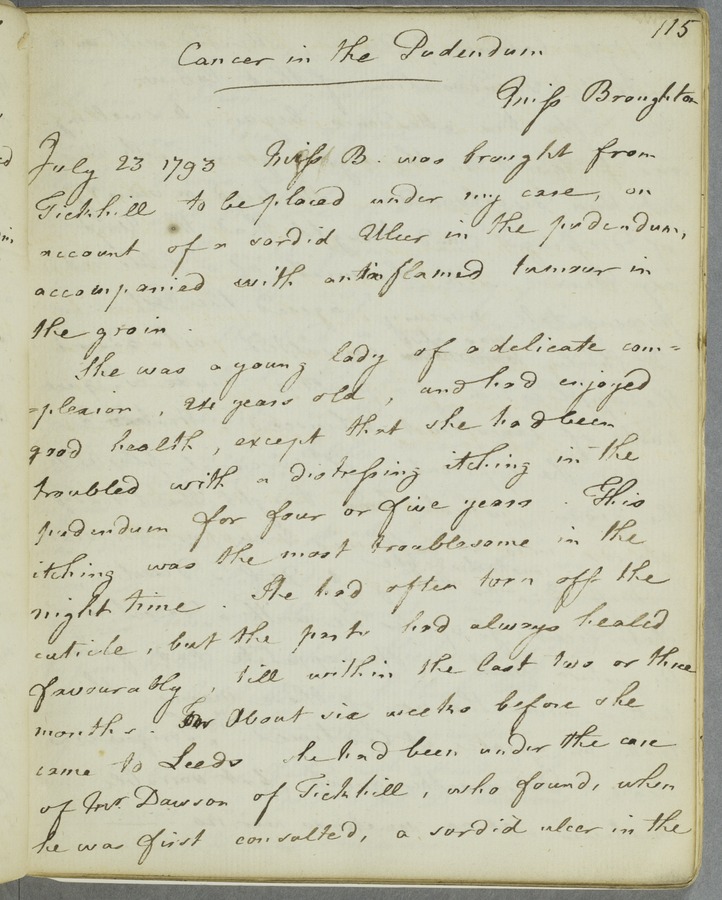 115
Cancer in the Pudendum
Miss Broughton
July 23 1793 Miss B. was brought from
Tickhill to be placed under my care, on
account of a sordid Ulcer in the pudendum,
accompanied with an inflamed tumour in
the groin.
She was a young lady of a delicate com=
=plexion, 24 years old, and had enjoyed
good health, except that she had been
troubled with a distressing itching in the
pudendum for four or five years. This
itching was the most troublesome in the
night time. She had often torn off the
cuticle, but the parts had always healed
favourably, till within the last two or three
months. About six weeks before she
came to Leeds she had been under the care
of Mr. Dawson of Tickhill, who found, when
he was first consulted, a sordid ulcer in the